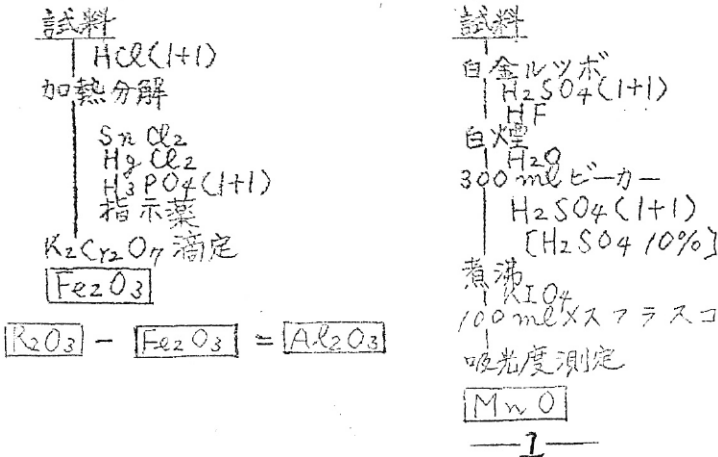 試料
HCl(1+1)
加熱分解
SnCl2
HgCl2
H3PO4(1+1)
指示薬
K2Cr2O7滴定
Fe2O3
R2O3 - Fe2O3 = Al2O3
試料
白金ルツボ
H2SO4(1+1)
HF
白煙
H2O
300mlビーカー
H2SO4(1+1)
[H2SO4 10%]
煮沸
KIO4
100mlメスフラスコ
吸光度測定
MnO